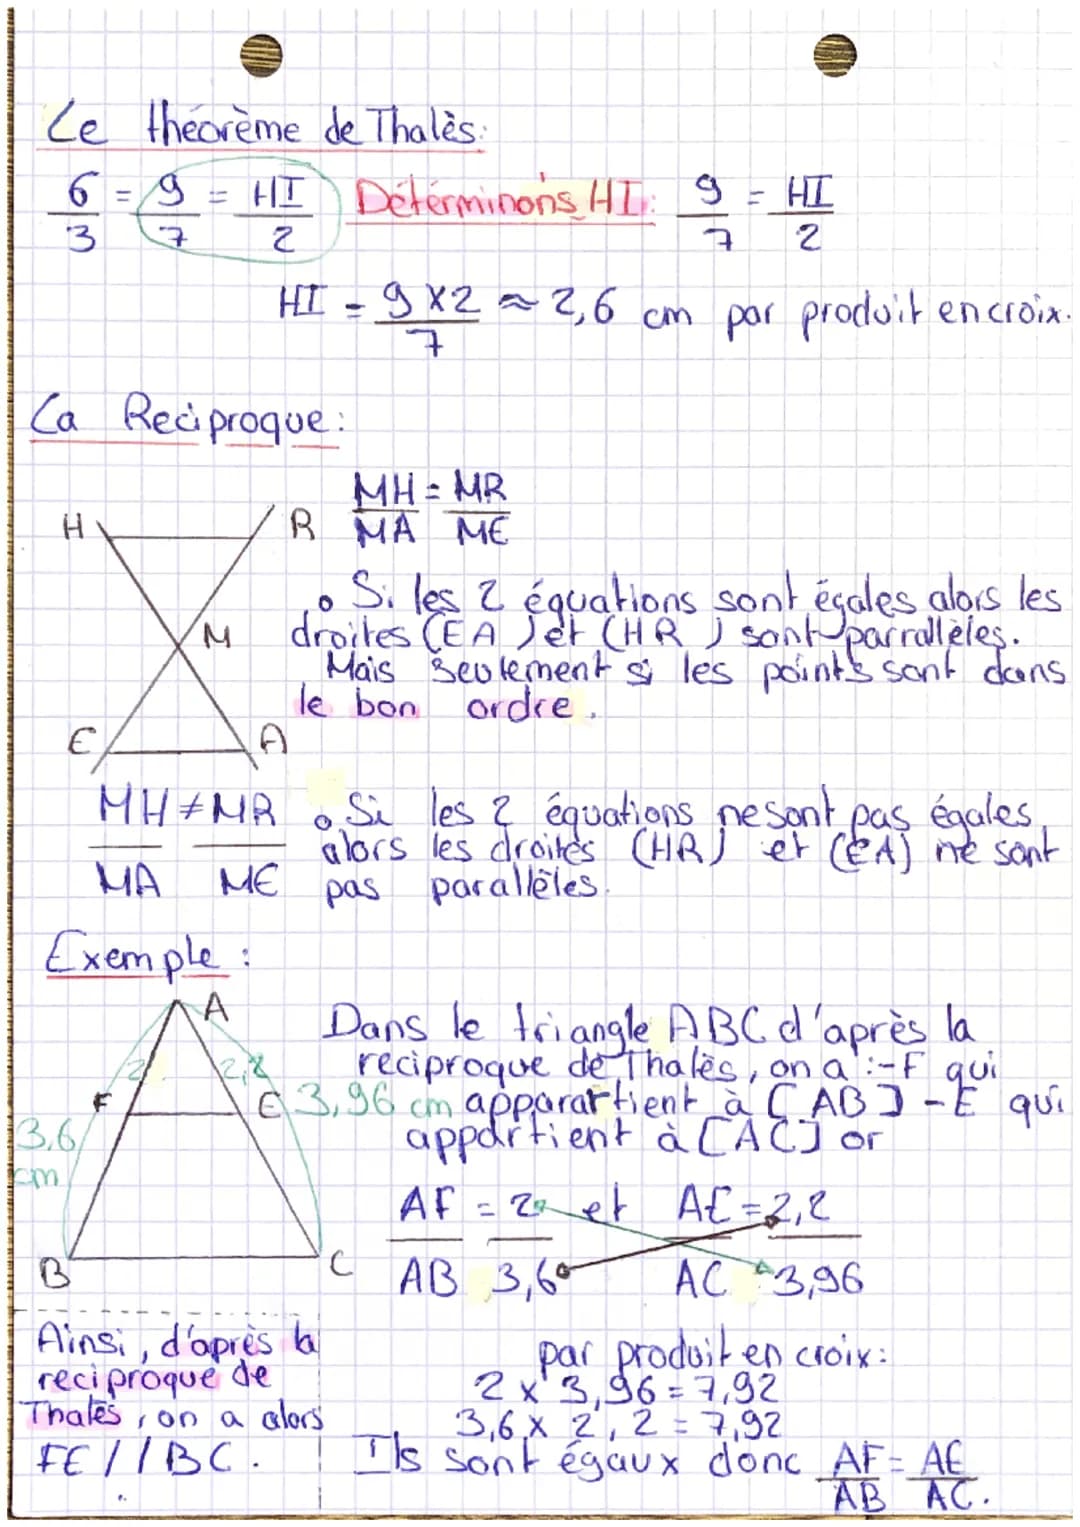 Le théorème de Thalès:
6/3 = 9/7 = HI/2 Détérminons HI: 9/7 = HI/2
HI = 9 x 2/7 ≈ 2,6 cm par produit en croix.
La Reciproque:
MH/MA = MR/ME
H R
M
E A
• Si les 2 équations sont égales alors les
droites (EA) et (HR) sont parrallèles.
Mais seulement si les points sont dans
le bon ordre.
MH/MA ≠ MR/ME
• Si les 2 équations ne sont pas égales,
alors les droites (HR) et (EA) ne sont
pas parallèles.
Exemple:
A
2 2,2
F E 3,96 cm
3,6
cm
B C
Dans le triangle ABC d'après la
reciproque de Thalès, on a :-F qui
apparartient à [AB] -E qui
appartient à [AC] or
AF/AB = 2/3,6 et AE/AC = 2,2/3,96
par produit en croix:
2 x 3,96 = 7,92
3,6 x 2,2 = 7,92
Ils sont égaux donc AF/AB = AE/AC.
Ainsi, d'après la
reciproque de
Thalès, on a alors
FE//BC.